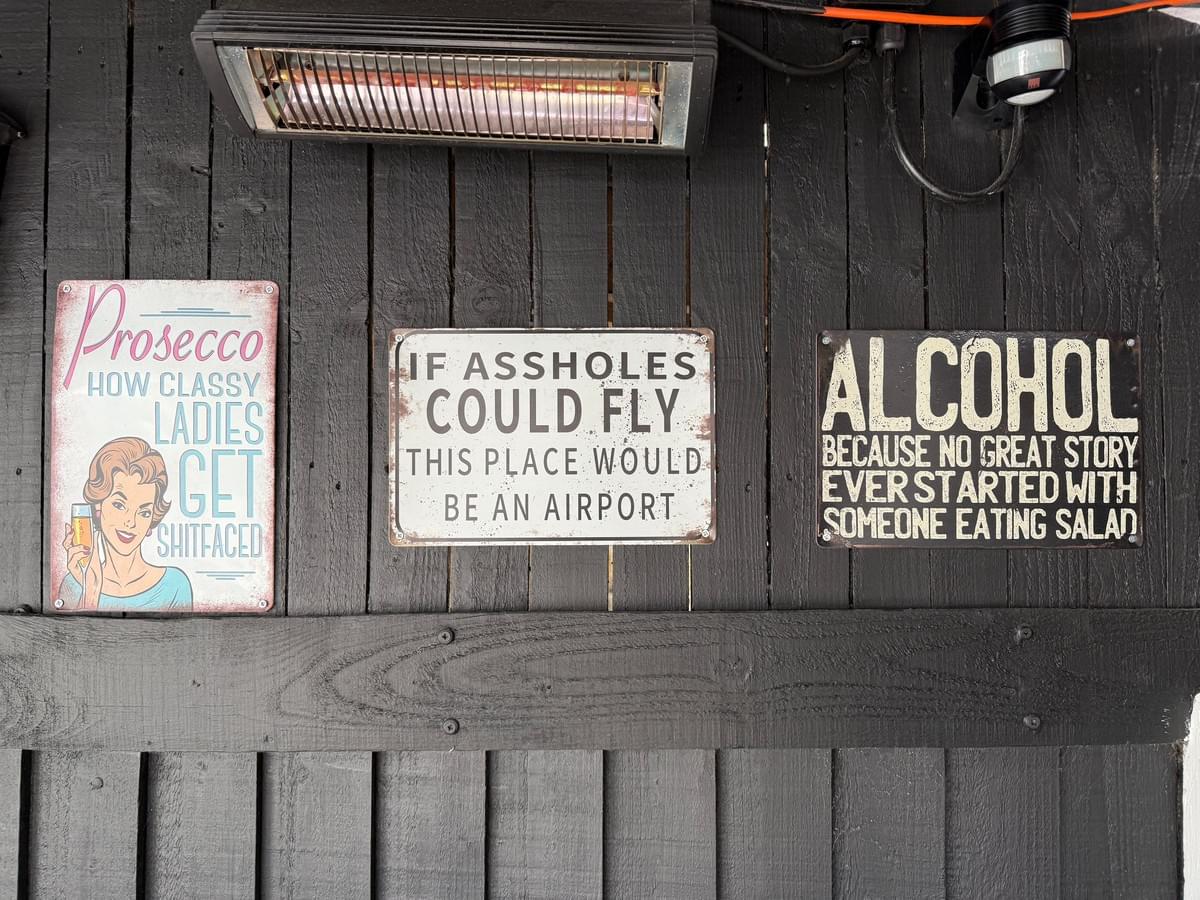 Prosecco
HOW CLASSY
LADIES
GET
SHITFACED
IF ASSHOLES
COULD FLY
THIS PLACE WOULD
BE AN AIRPORT
ALCOHOL
BECAUSE NO GREAT STORY
EVER STARTED WITH
SOMEONE EATING SALAD